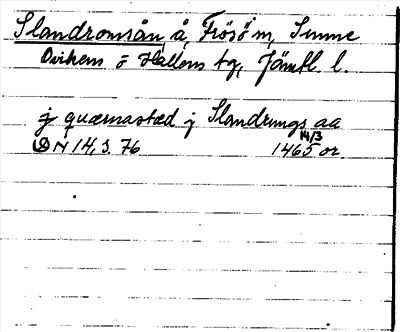 Slandromsån, å, Frösö m, Sunne
Ovikens o Hallens tg, Jämtl. l.
j quærnastæd j Slandrungs aa
DN 14, 3. 76 1465 14/3 or.